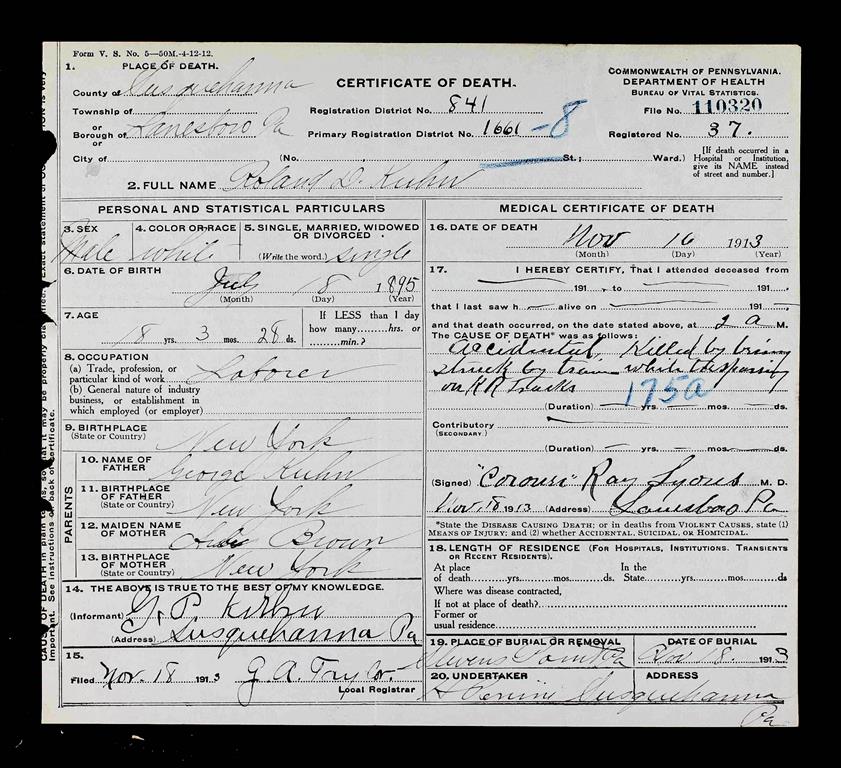 Form V. S. No. 5—50M.-4-12-12.
1. PLACE OF DEATH.
County of Susquehanna
Township of
or
Borough of Lanesboro Pa
or
City of (No. St.; Ward.)
CERTIFICATE OF DEATH.
Registration District No. 841
Primary Registration District No. 1661 -8
COMMONWEALTH OF PENNSYLVANIA.
DEPARTMENT OF HEALTH
BUREAU OF VITAL STATISTICS.
File No. 110320
Registered No. 37.
[If death occurred in a
Hospital or Institution,
give its NAME instead
of street and number.]
2. FULL NAME Roland D. Kuhn
PERSONAL AND STATISTICAL PARTICULARS
3. SEX
Male
4. COLOR OR RACE
white
5. SINGLE, MARRIED, WIDOWED
OR DIVORCED
(Write the word.) single
6. DATE OF BIRTH
July 8 1895
(Month) (Day) (Year)
7. AGE
18 yrs. 3 mos. 28 ds.
If LESS than 1 day
how many hrs. or
min.?
8. OCCUPATION
(a) Trade, profession, or
particular kind of work Laborer
(b) General nature of industry
business, or establishment in
which employed (or employer)
9. BIRTHPLACE
(State or Country) New York
PARENTS
10. NAME OF
FATHER George Kuhn
11. BIRTHPLACE
OF FATHER
(State or Country) New York
12. MAIDEN NAME
OF MOTHER Brown
13. BIRTHPLACE
OF MOTHER
(State or Country) New York
14. THE ABOVE IS TRUE TO THE BEST OF MY KNOWLEDGE.
(Informant) G. P. Kuhn
(Address) Susquehanna Pa
15.
Filed Nov. 18 1913 G. A. Taylor
Local Registrar
MEDICAL CERTIFICATE OF DEATH
16. DATE OF DEATH
Nov 16 1913
(Month) (Day) (Year)
17. I HEREBY CERTIFY, That I attended deceased from
191 , to 191 ,
that I last saw h alive on 191 ,
and that death occurred, on the date stated above, at 2 a M.
The CAUSE OF DEATH* was as follows:
Accidental, Killed by being
struck by train while trespassing
on RR Tracks
175a
(Duration) yrs. mos. ds.
Contributory
(SECONDARY.)
(Duration) yrs. mos. ds.
(Signed) "Coroner" Ray Lyons M. D.
Nov. 18 1913 (Address) Lanesboro Pa
*State the DISEASE CAUSING DEATH; or in deaths from VIOLENT CAUSES, state (1)
MEANS OF INJURY; and (2) whether ACCIDENTAL, SUICIDAL, OR HOMICIDAL.
18. LENGTH OF RESIDENCE (FOR HOSPITALS, INSTITUTIONS. TRANSIENTS
OR RECENT RESIDENTS).
At place
of death yrs. mos. ds.
In the
State yrs. mos. ds
Where was disease contracted,
If not at place of death?
Former or
usual residence
19. PLACE OF BURIAL OR REMOVAL
Stevens Point Pa
DATE OF BURIAL
Nov 18. 1913
20. UNDERTAKER
ADDRESS
Susquehanna
Pa